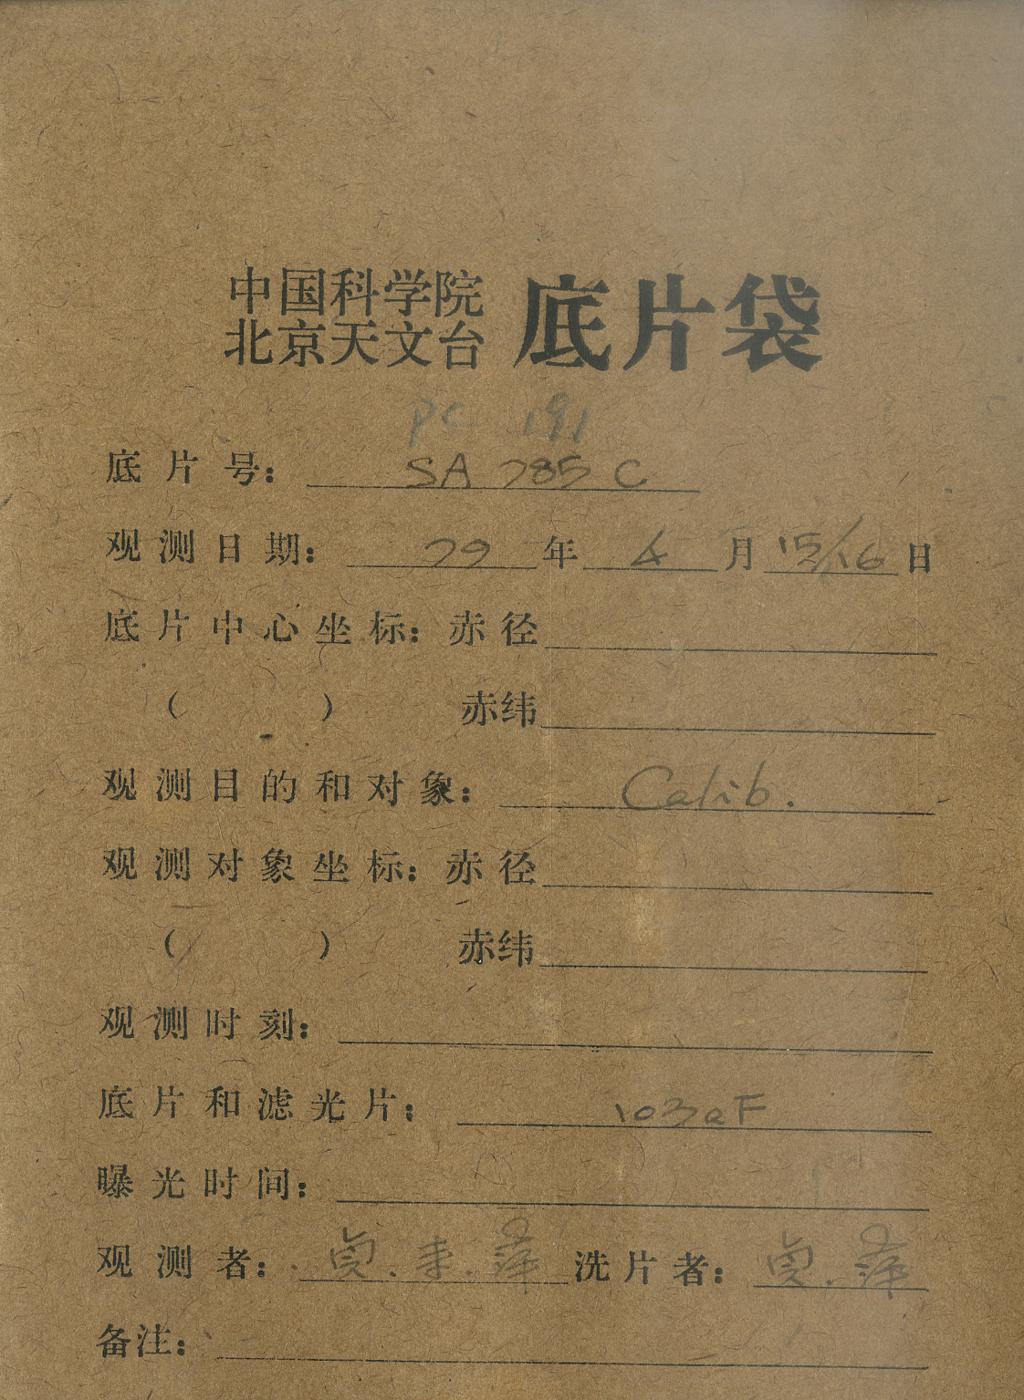 中国科学院
北京天文台 底片袋
PC 191
底片号: SA 785 C
观测日期: 79 年 4 月 15/16 日
底片中心坐标: 赤径
( ) 赤纬
观测目的和对象: Calib.
观测对象坐标: 赤径
( ) 赤纬
观测时刻:
底片和滤光片: 103aF
曝光时间:
观测者: 贞. . 萍 洗片者: 贞. 萍
备注: